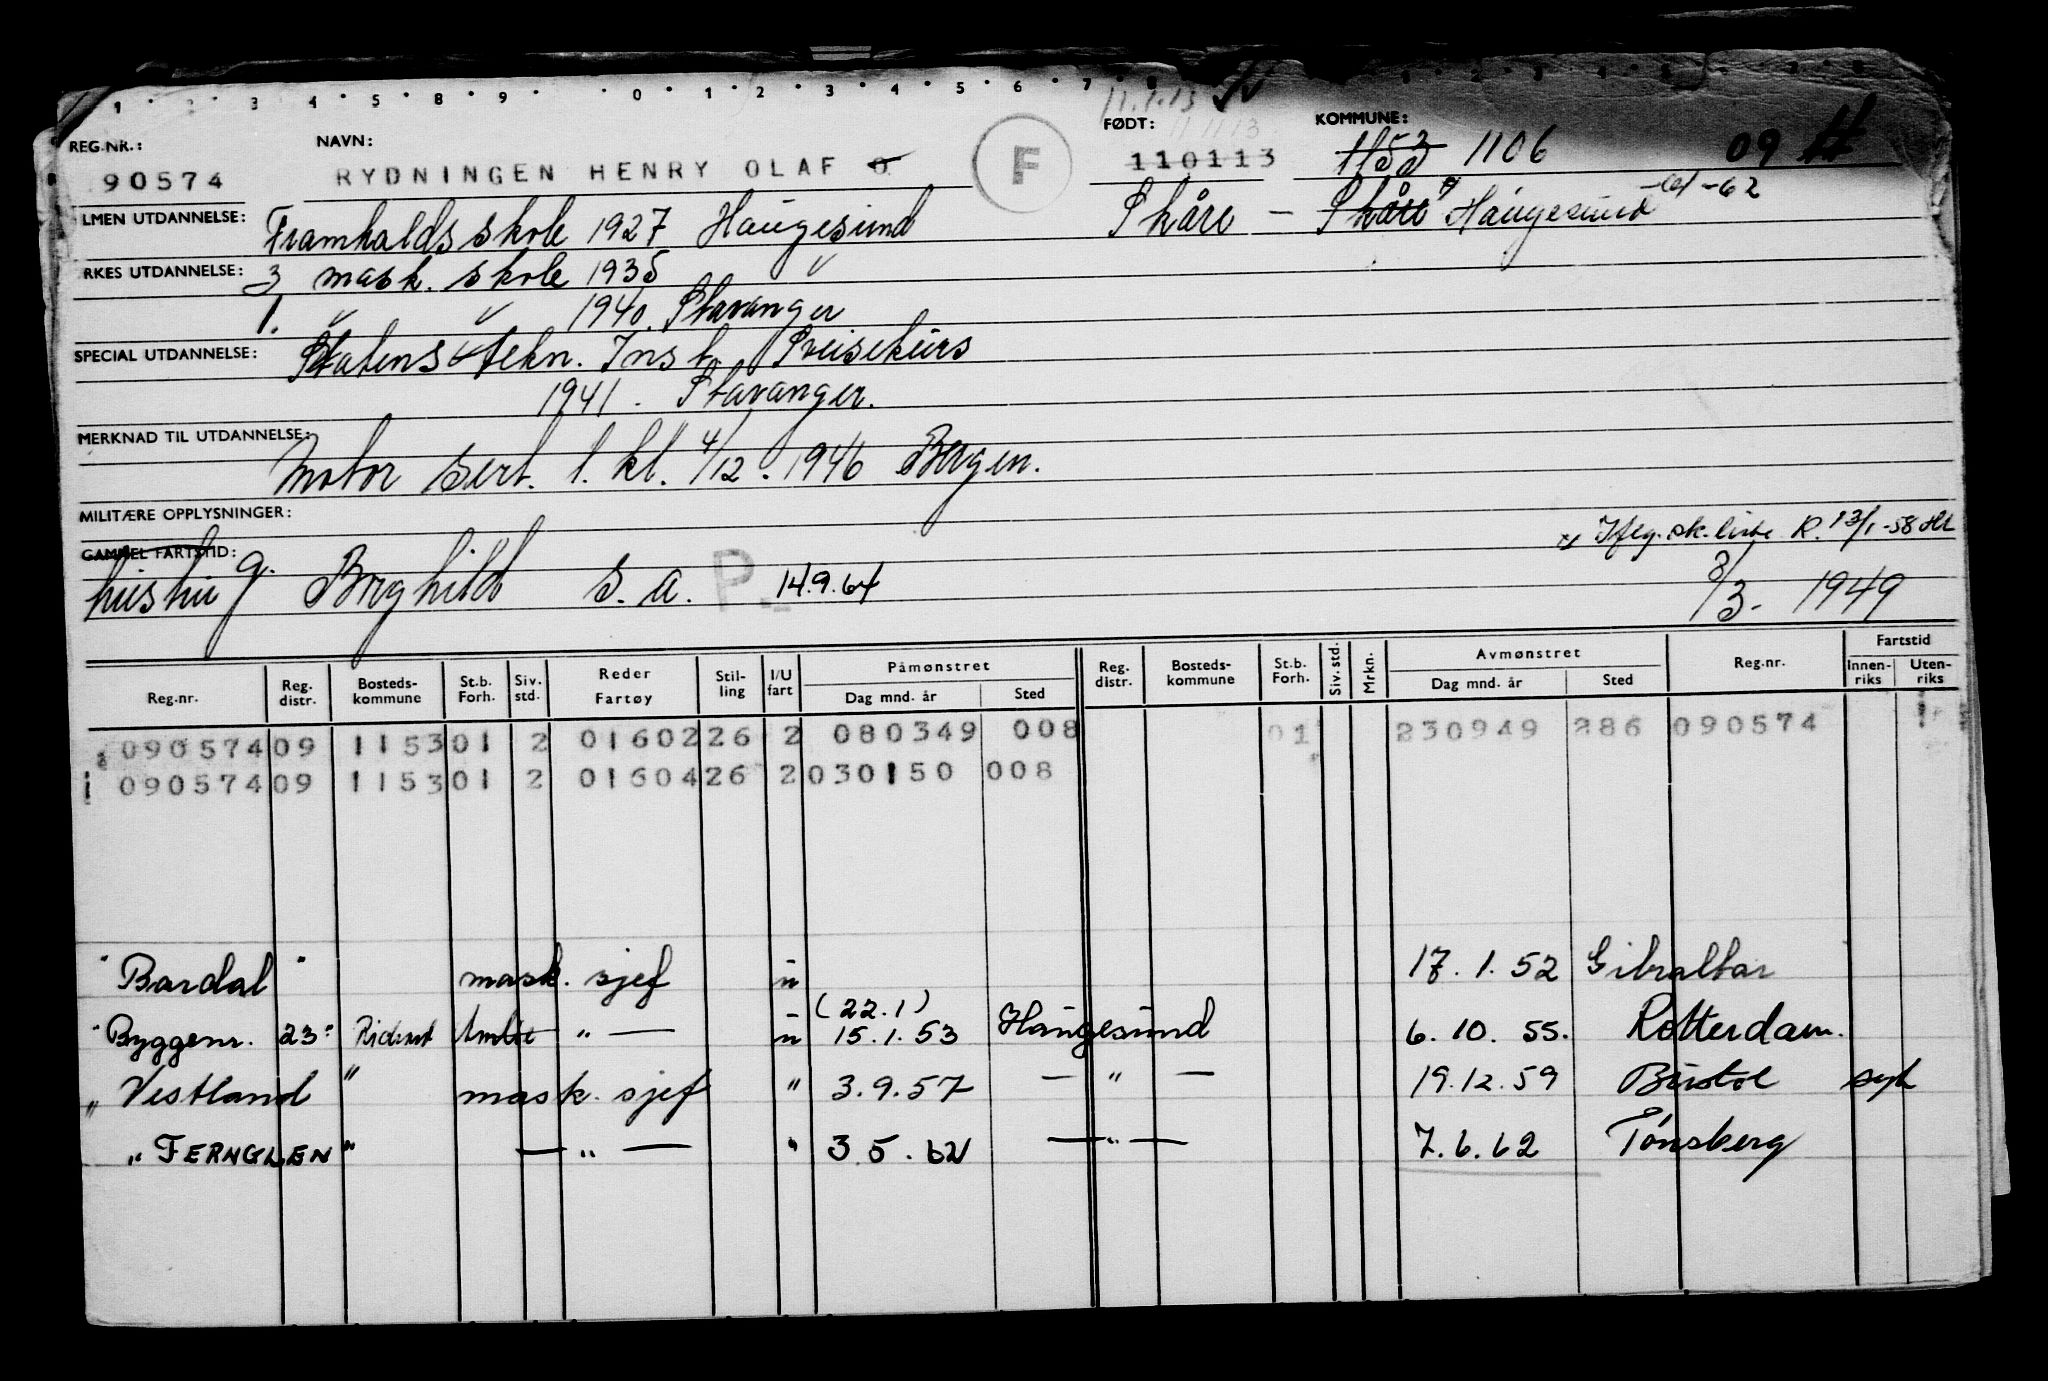 1 2 3 4 5 8 9 0 1 2 3 4 5 6 7 8
11.1.13
REG.NR.: NAVN: FØDT: 11 11 13 KOMMUNE:
90574 RYDNINGEN HENRY OLAF O F 110113 1153 1106 09 H
LMEN UTDANNELSE: Framhaldsskole 1927 Haugesund Skåre — Skåre Haugesund -61-62
RKES UTDANNELSE: 3 mask. skole 1935 "
1. " " 1940. Stavanger
SPECIAL UTDANNELSE: Statens tekn. Inst. Sveisekurs
1941. Stavanger.
MERKNAD TIL UTDANNELSE:
Motor sert. 1. kl. 4/12. 1946 Bergen.
MILITÆRE OPPLYSNINGER: x Iflg. sk. liste R. 13/1-58 HL
GAMMEL FARTSTID:
hustru g. Borghild s. a. P 14.9.64 8/3. 1949
Reg.nr. Reg. distr. Bosteds-kommune St.b. Forh. Siv. std. Reder Fartøy Stil-ling I/U fart Påmønstret Dag mnd. år Sted Reg. distr. Bosteds-kommune St.b. Forh. Siv. std. Mrkn. Avmønstret Dag mnd. år Sted Reg.nr. Fartstid Innen-riks Uten-riks
090574 09 1153 01 2 01602 26 2 080349 008 01 230949 286 090574
090574 09 1153 01 2 01604 26 2 030150 008
"Bardal" mask. sjef u 17.1.52 Gibraltar
(22.1)
"Byggenr. 23" " — u 15.1.53 Haugesund 6.10.55. Rotterdam.
"Vestland" mask. sjef " 3.9.57 — " — 19.12.59 Bristol syk
"FERNGLEN" — " — " 3.5.62 — " — 7.6.62 Tønsberg